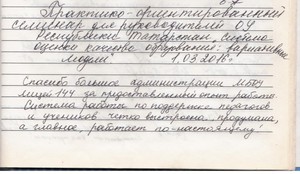 Практико-ориентированный
семинар для руководителей ОУ
Республики Татарстан,
оценки качества образования: вариативные
модели 1.03.2016г
Спасибо большое администрации МБОУ
лицей 144 за предоставленный опыт работы.
Система работы по поддержке педагогов
и учеников четко выстроена, продумана,
а главное, работает по-настоящему!